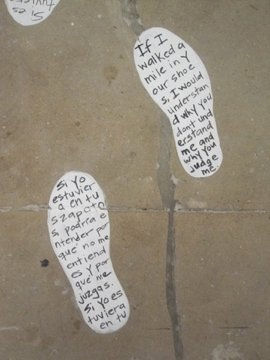 If I
walked a
mile in Y
our shoe
s, I would
understan
d why you
dont und
erstand
me and
why you
judge
me.
Si yo
estuvier
a en tu
szapato
s podria e
ntender por
qué no me
entiend
es y por
qué me
juzgas.
Si yo es
tuviera
en tu